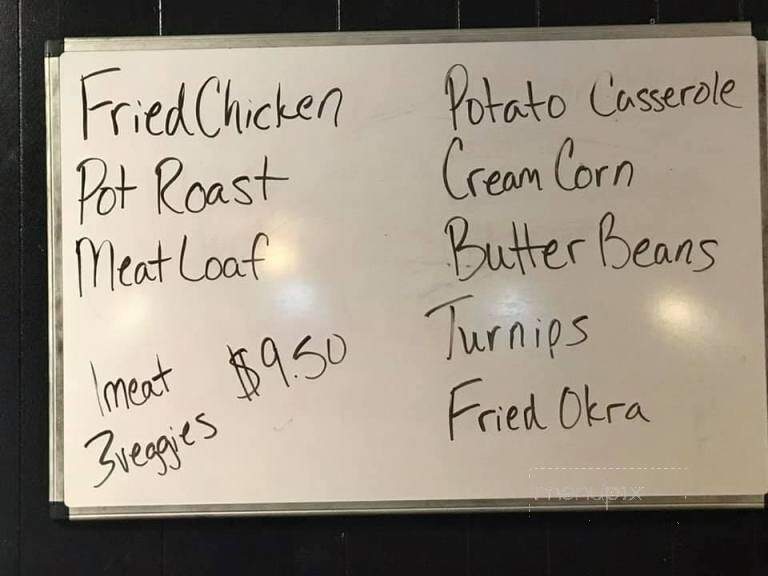 Fried Chicken
Pot Roast
Meat Loaf
1 meat $9.50
3 veggies
Potato Casserole
Cream Corn
Butter Beans
Turnips
Fried Okra
menupix